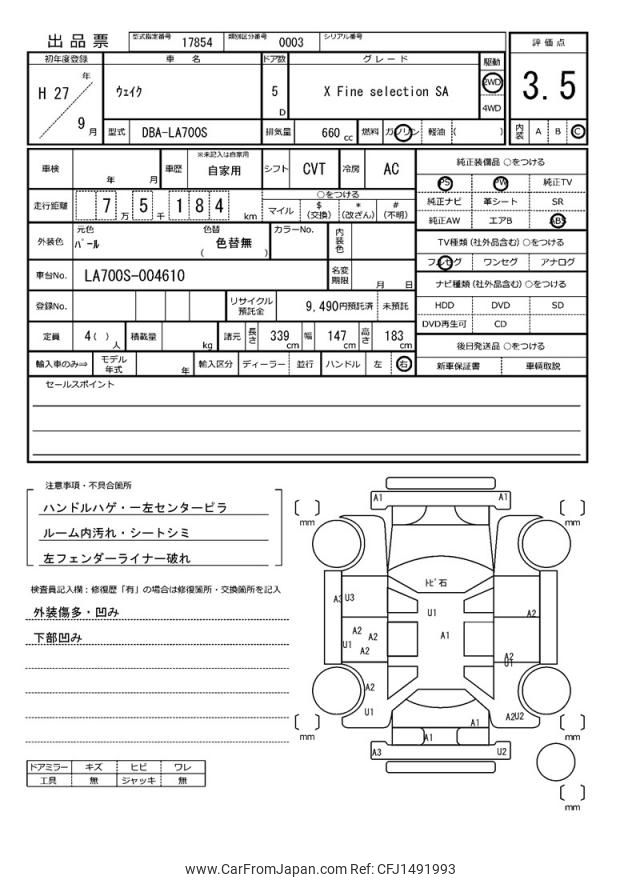 出品票
型式指定番号 17854 類別区分番号 0003 シリアル番号
評価点
3.5
内装 A B C
初年度登録 車名 ドア数 グレード 駆動
H 27 年 9 月
ウェイク
5 D
X Fine selection SA
2WD
4WD
型式 DBA-LA700S 排気量 660 cc 燃料 ガソリン 軽油 ( )
車検 年 月 車歴 ※未記入は自家用 自家用 シフト CVT 冷房 AC
走行距離 7 万 5 千 1 8 4 km
○をつける
マイル $(交換) *(改ざん) #(不明)
外装色 元色 パール 色替 色替無 ( ) カラーNo. 内装色
車台No. LA700S-004610 名変期限 月 日
登録No. リサイクル預託金 9,490円預託済 未預託
定員 4( )人 積載量 kg 諸元 長さ 339 cm 幅 147 cm 高さ 183 cm
輸入車のみ⇒ モデル年式 年 輸入区分 ディーラー 並行 ハンドル 左 右
純正装備品 ○をつける
PS PW 純正TV
純正ナビ 革シート SR
純正AW エアB ABS
TV種類(社外品含む)○をつける
フルセグ ワンセグ アナログ
ナビ種類(社外品含む)○をつける
HDD DVD SD
DVD再生可 CD
後日発送品 ○をつける
新車保証書 車輌取説
セールスポイント
注意事項・不具合箇所
ハンドルハゲ・一左センターピラ
ルーム内汚れ・シートシミ
左フェンダーライナー破れ
検査員記入欄:修復歴「有」の場合は修復箇所・交換箇所を記入
外装傷多・凹み
下部凹み
ドアミラー キズ ヒビ ワレ
工具 無 ジャッキ 無
A1 A1
mm mm
トビ石
A3 U3
U1
A2
A2 A2
U1 A2
A1
A2
U1
A2
U1
A1
A2U2
A1
A3 U2
mm mm
mm
www.CarFromJapan.com Ref: CFJ1491993